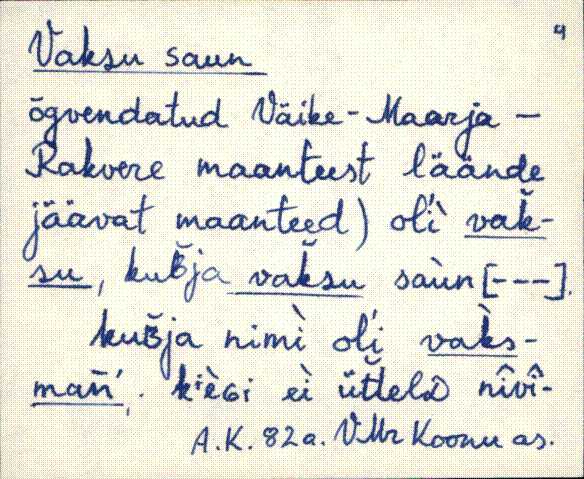 4
Vaksu saun
õgvendatud Väike-Maarja –
Rakvere maanteest läände
jäävat maanteed) oĺì vak̆-
su, kuʙ̆ja vak̆su saùn [---].
kuʙ̆ja nimì oĺi vak̀s-
mań. kièɢi eì üt̆telâ nîvî-
A.K. 82a. VMr Koonu as.